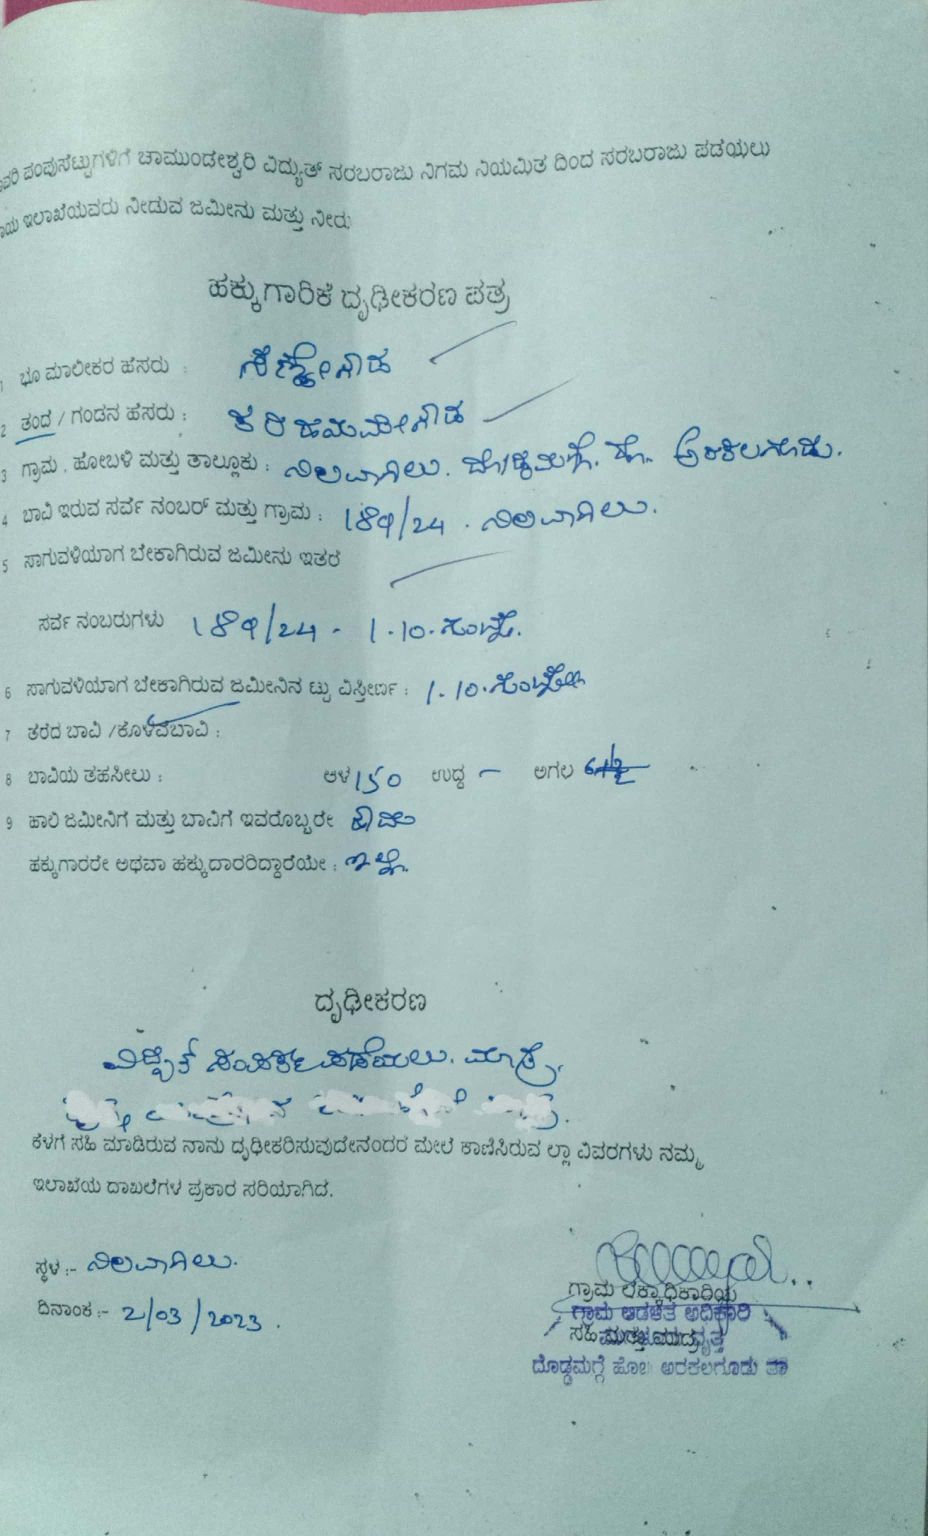 ಪಂಪುಸೆಟ್ಟುಗಳಿಗೆ ಚಾಮುಂಡೇಶ್ವರಿ ವಿದ್ಯುತ್ ಸರಬರಾಜು ನಿಗಮ ನಿಯಮಿತ ದಿಂದ ಸರಬರಾಜು ಪಡೆಯಲು
ಇಲಾಖೆಯವರು ನೀಡುವ ಜಮೀನು ಮತ್ತು ನೀರು
ಹಕ್ಕುಗಾರಿಕೆ ದೃಢೀಕರಣ ಪತ್ರ
1 ಭೂ ಮಾಲೀಕರ ಹೆಸರು :
2 ತಂದೆ / ಗಂಡನ ಹೆಸರು :
3 ಗ್ರಾಮ . ಹೋಬಳಿ ಮತ್ತು ತಾಲ್ಲೂಕು : ನಿಲವಾಗಿಲು. ದೊಡ್ಡಮಗ್ಗೆ. ಹೋ. ಅರಕಲಗೂಡು.
4 ಬಾವಿ ಇರುವ ಸರ್ವೆ ನಂಬರ್ ಮತ್ತು ಗ್ರಾಮ : 189/24 . ನಿಲವಾಗಿಲು.
5 ಸಾಗುವಳಿಯಾಗ ಬೇಕಾಗಿರುವ ಜಮೀನು ಇತರೆ
ಸರ್ವೆ ನಂಬರುಗಳು 189/24 - 1.10.ಗುಂಟೆ.
6 ಸಾಗುವಳಿಯಾಗ ಬೇಕಾಗಿರುವ ಜಮೀನಿನ ಟ್ಟು ವಿಸ್ತೀರ್ಣ : 1.10.
7 ತೆರೆದ ಬಾವಿ /ಕೊಳವೆಬಾವಿ :
8 ಬಾವಿಯ ತಹಸೀಲು : ಆಳ 150 ಉದ್ದ - ಅಗಲ
9 ಹಾಲಿ ಜಮೀನಿಗೆ ಮತ್ತು ಬಾವಿಗೆ ಇವರೊಬ್ಬರೇ
ಹಕ್ಕುಗಾರರೇ ಅಥವಾ ಹಕ್ಕುದಾರರಿದ್ದಾರೆಯೇ : ಇಲ್ಲ.
ದೃಢೀಕರಣ
ವಿದ್ಯುತ್ ಸಂಪರ್ಕ ಪಡೆಯಲು. ಮಾತ್ರ.
ಕೆಳಗೆ ಸಹಿ ಮಾಡಿರುವ ನಾನು ದೃಢೀಕರಿಸುವುದೇನೆಂದರೆ ಮೇಲೆ ಕಾಣಿಸಿರುವ ಲ್ಲಾ ವಿವರಗಳು ನಮ್ಮ
ಇಲಾಖೆಯ ದಾಖಲೆಗಳ ಪ್ರಕಾರ ಸರಿಯಾಗಿದೆ.
ಸ್ಥಳ :- ನಿಲವಾಗಿಲು.
ದಿನಾಂಕ :- 2/03/2023 .
ಗ್ರಾಮ ಲೆಕ್ಕಾಧಿಕಾರಿಯ
ಗ್ರಾಮ ಆಡಳಿತ ಅಧಿಕಾರಿ
ಸಹಿ ಮತ್ತು ಮುದ್ರೆ
ದೊಡ್ಡಮಗ್ಗೆ ಹೋಬ ಅರಕಲಗೂಡು ತಾ